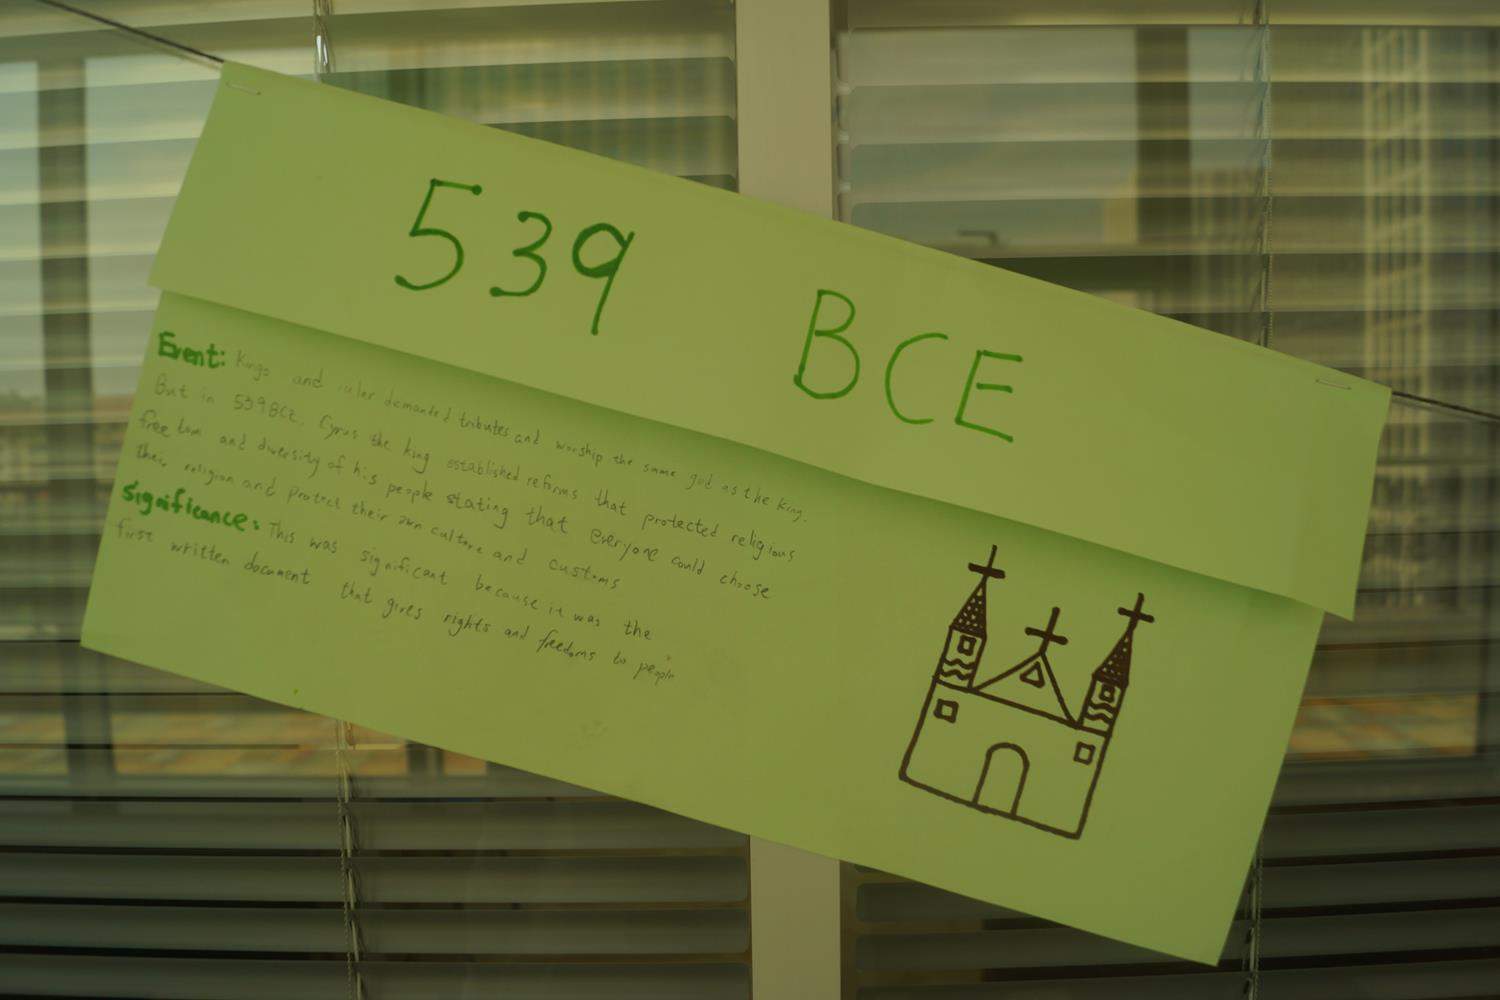 539 BCE
Event: Kings and ruler demanded tributes and worship the same god as the king.
But in 539BCE, Cyrus the king established reforms that protected religious
freedom and diversity of his people stating that everyone could choose
their religion and protect their own culture and customs
Significance: This was significant because it was the
first written document that gives rights and freedoms to people